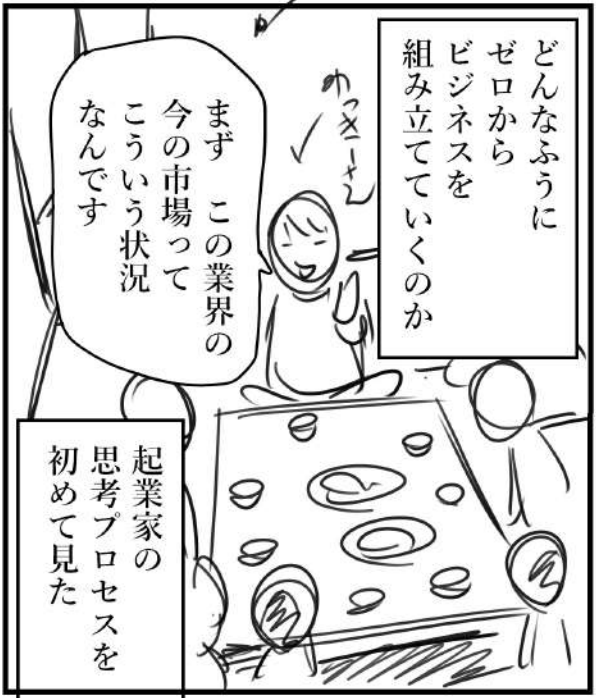 どんなふうに
ゼロから
ビジネスを
組み立てていくのか
まず　この業界の
今の市場って
こういう状況
なんです
起業家の
思考プロセスを
初めて見た